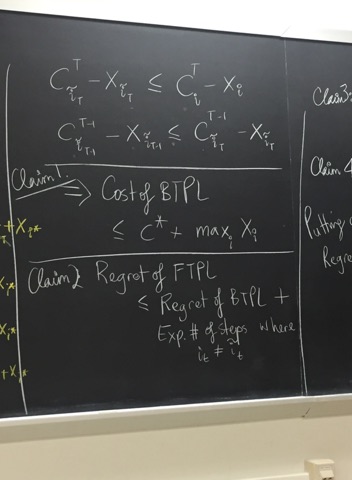 C^T_{ĩ_T} - X_{ĩ_T} ≤ C^T_i - X_i
C^{T-1}_{ĩ_{T-1}} - X_{ĩ_{T-1}} ≤ C^{T-1}_{ĩ_T} - X_{ĩ_T}
Claim 1. ⇒ Cost of BTPL
≤ C* + max_i X_i
Claim 2 Regret of FTPL
≤ Regret of BTPL +
Exp. # of steps where
i_t ≠ ĩ_t
+ X_{i*}
X_{i*}
X_{i*}
+ X_{i*}
Claim 3:
Claim 4
Putting
Regre